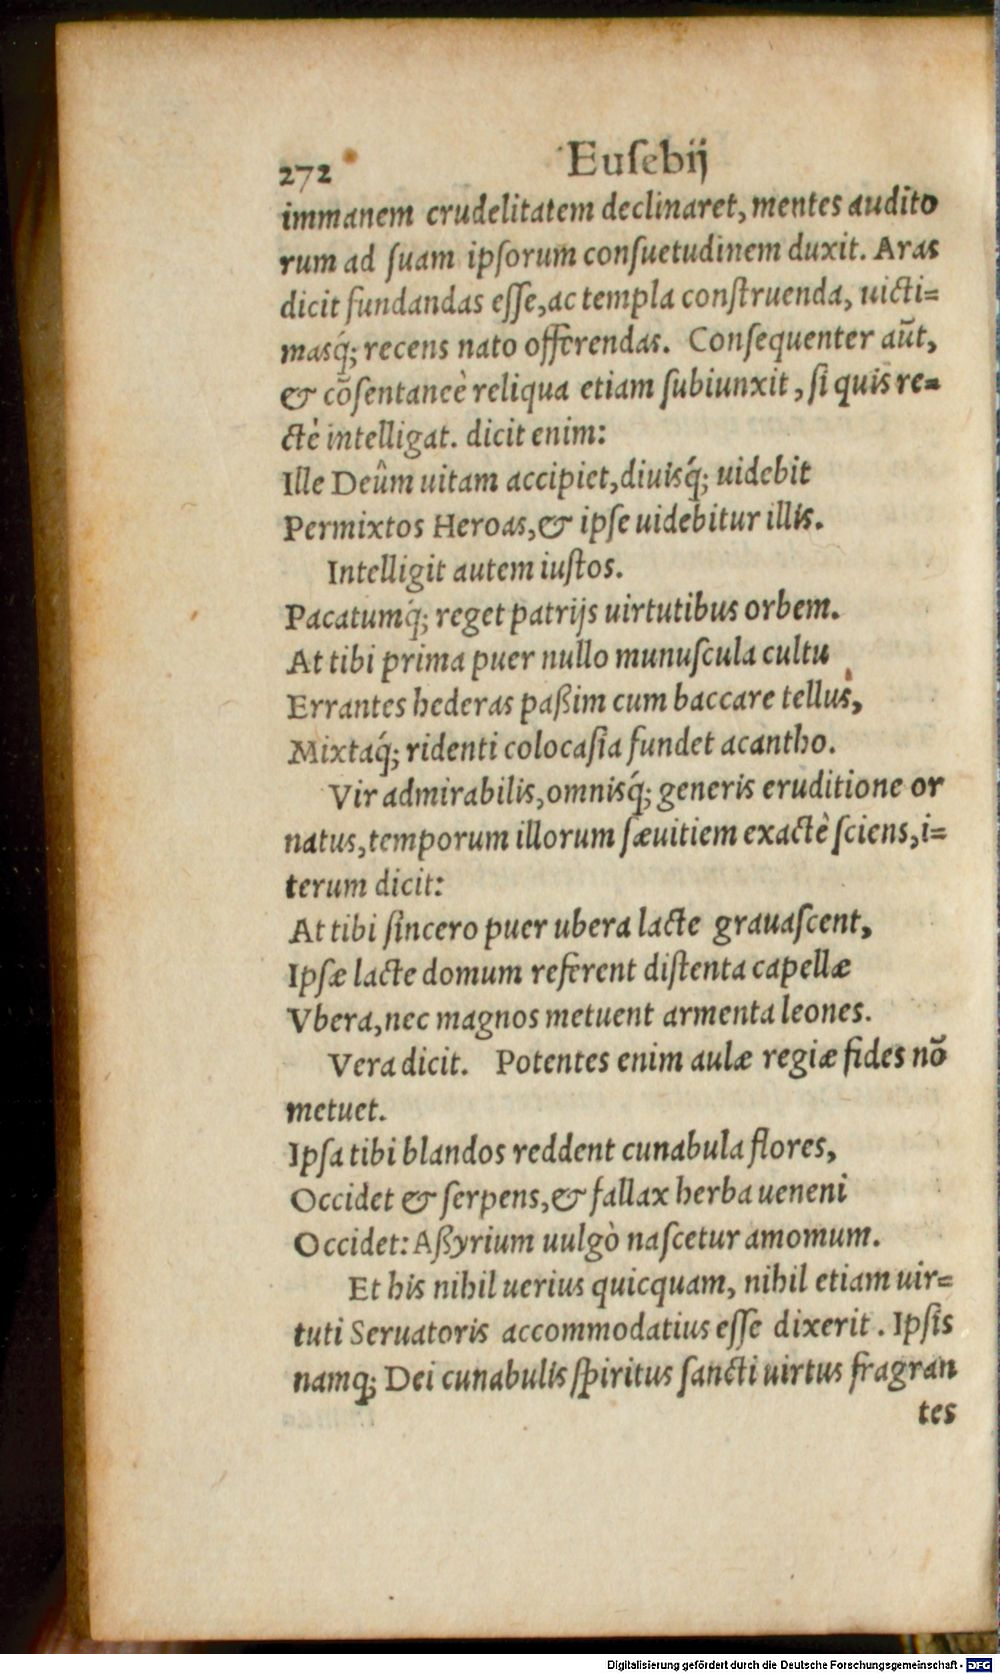 272 Euſebij
immanem crudelitatem declinaret, mentes audito
rum ad ſuam ipſorum conſuetudinem duxit. Aras
dicit fundandas eſſe, ac templa conſtruenda, uicti=
masq́; recens nato offerendas. Conſequenter aũt,
& cōſentaneè reliqua etiam ſubiunxit, ſi quis re=
ctè intelligat. dicit enim:
Ille Deûm uitam accipiet, diuisq́; uidebit
Permixtos Heroas, & ipſe uidebitur illis.
Intelligit autem iuſtos.
Pacatumq́; reget patrijs uirtutibus orbem.
At tibi prima puer nullo munuſcula cultu
Errantes hederas paßim cum baccare tellus,
Mixtaq́; ridenti colocaſia fundet acantho.
Vir admirabilis, omnisq́; generis eruditione or
natus, temporum illorum ſæuitiem exactè ſciens, i=
terum dicit:
At tibi ſincero puer ubera lacte grauaſcent,
Ipſæ lacte domum referent diſtenta capellæ
Vbera, nec magnos metuent armenta leones.
Vera dicit. Potentes enim aulæ regiæ fides nō
metuet.
Ipſa tibi blandos reddent cunabula flores,
Occidet & ſerpens, & fallax herba ueneni
Occidet: Aßyrium uulgò naſcetur amomum.
Et his nihil uerius quicquam, nihil etiam uir=
tuti Seruatoris accommodatius eſſe dixerit. Ipſis
namq; Dei cunabulis ſpiritus ſancti uirtus fragran
tes
Digitalisierung gefördert durch die Deutsche Forschungsgemeinschaft - DFG